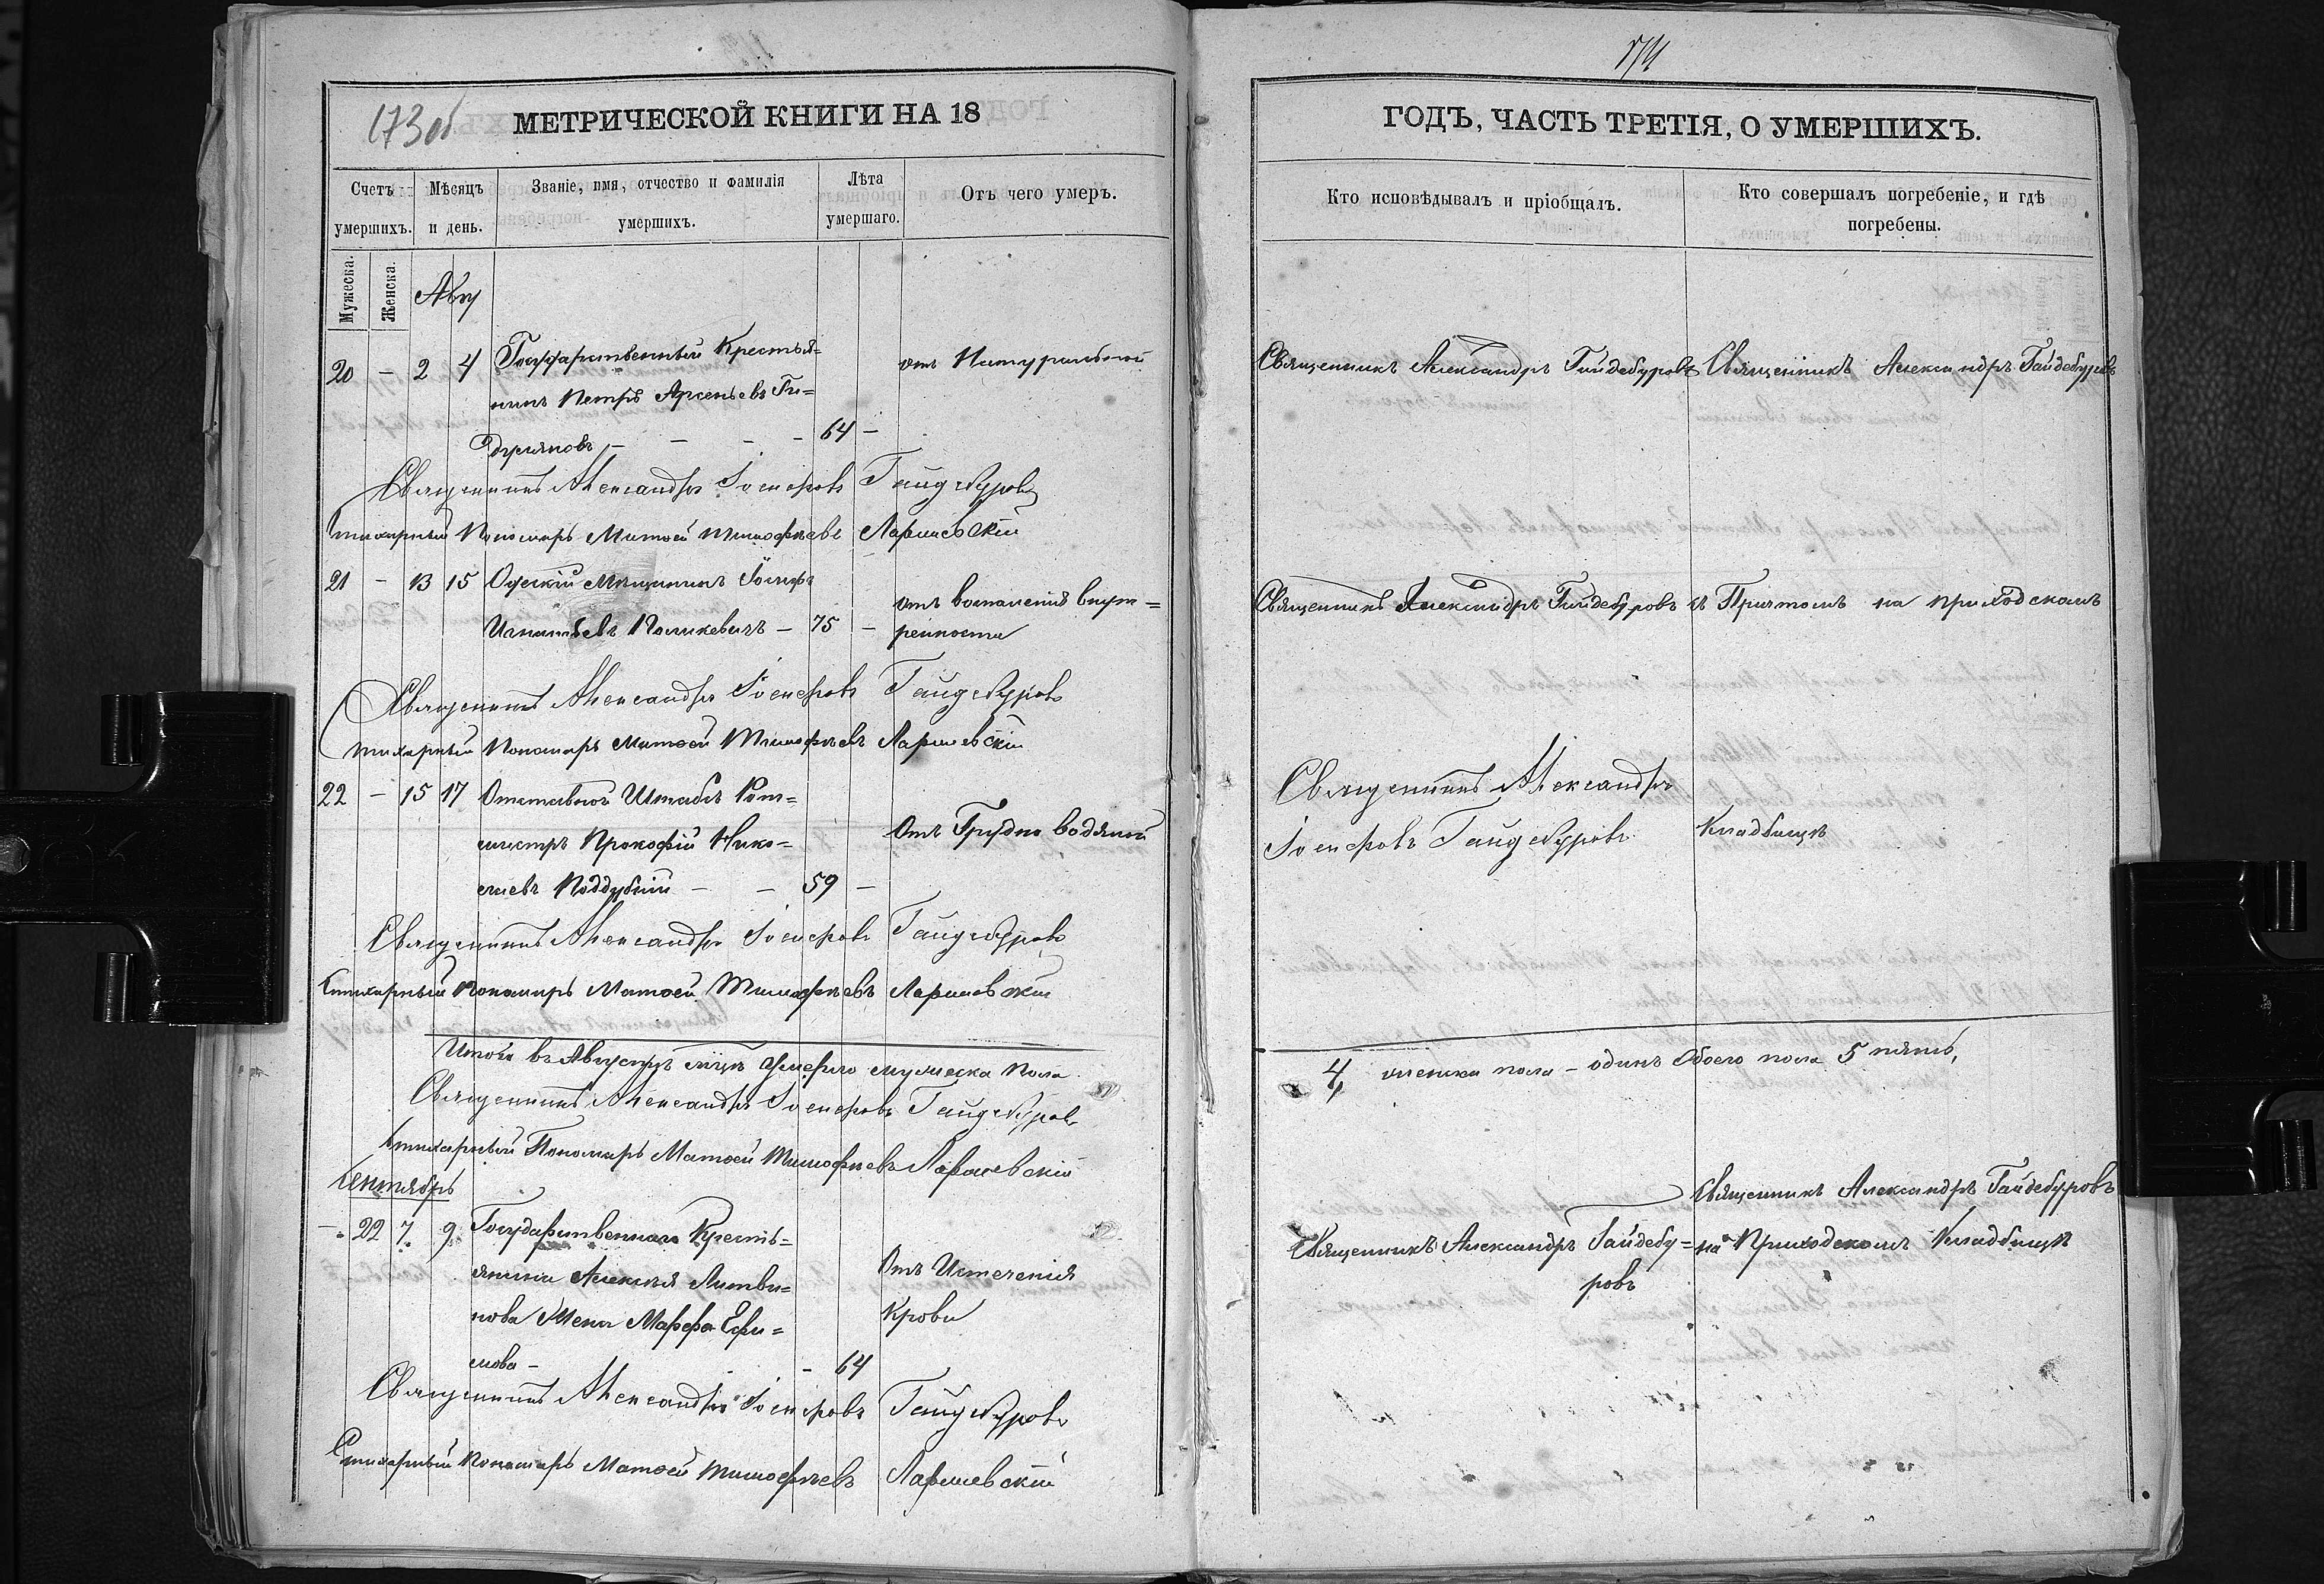 173 об
МЕТРИЧЕСКОЙ КНИГИ НА 18
Счетъ умершихъ.
Мужеска.
Женска.
Мѣсяцъ и день.
Званіе, имя, отчество и фамилія умершихъ.
Лѣта умершаго.
Отъ чего умеръ.
Авгу
20 — 2 4 Государственный Крестья=
нинъ Петръ Арсеньевъ
64 —
отъ Натуральной
Священникъ Александръ Іосифовъ Гайдебуровъ
Стихарный Пономарь Матѳей Тимофѣевъ Ларшевскій
21 — 13 15 Одескій Мѣщанинъ Іосифъ
Игнатьевъ — 75 —
отъ воспаленія внут=
ренности
Священникъ Александръ Іосифовъ Гайдебуровъ
Стихарный Пономарь Матѳей Тимофѣевъ Ларшевскій
22 — 15 17 Отставной Штабсъ Рот=
мистръ Прокофій Нико=
лаевъ Поддубній — — 59 —
Отъ Грудно водяной
Священникъ Александръ Іосифовъ Гайдебуровъ
Стихарный Пономарь Матѳей Тимофѣевъ Ларшевскій
Итого въ Августѣ м͠цѣ Умерло мужеска Пола
Священникъ Александръ Іосифовъ Гайдебуровъ
Стихарный Пономарь Матѳей Тимофѣевъ Ларшевскій
Сентябрь
— 22 7 9 Государственнаго Кресть=
янина Алексѣя Литви=
нова Жена Марфа Ефи=
мова — — 64
Отъ Истеченія
Крови
Священникъ Александръ Іосифовъ Гайдебуровъ
Стихарный Пономарь Матѳей Тимофѣевъ Ларшевскій
174
ГОДЪ, ЧАСТЬ ТРЕТІЯ, О УМЕРШИХЪ.
Кто исповѣдывалъ и пріобщалъ.
Кто совершалъ погребеніе, и гдѣ погребены.
Священникъ Александръ Гайдебуровъ
Священникъ Александръ Гайдебуровъ
Священникъ Александръ Гайдебуровъ
съ Притомъ на приходскомъ
Священникъ Александръ
Іосифовъ Гайдебуровъ
Кладбищѣ
4, женска пола — одинъ Обоего пола 5 пять,
Священникъ Александръ Гайдебу=
ровъ
Священникъ Александръ Гайдебуровъ
на Приходскомъ Кладбищѣ